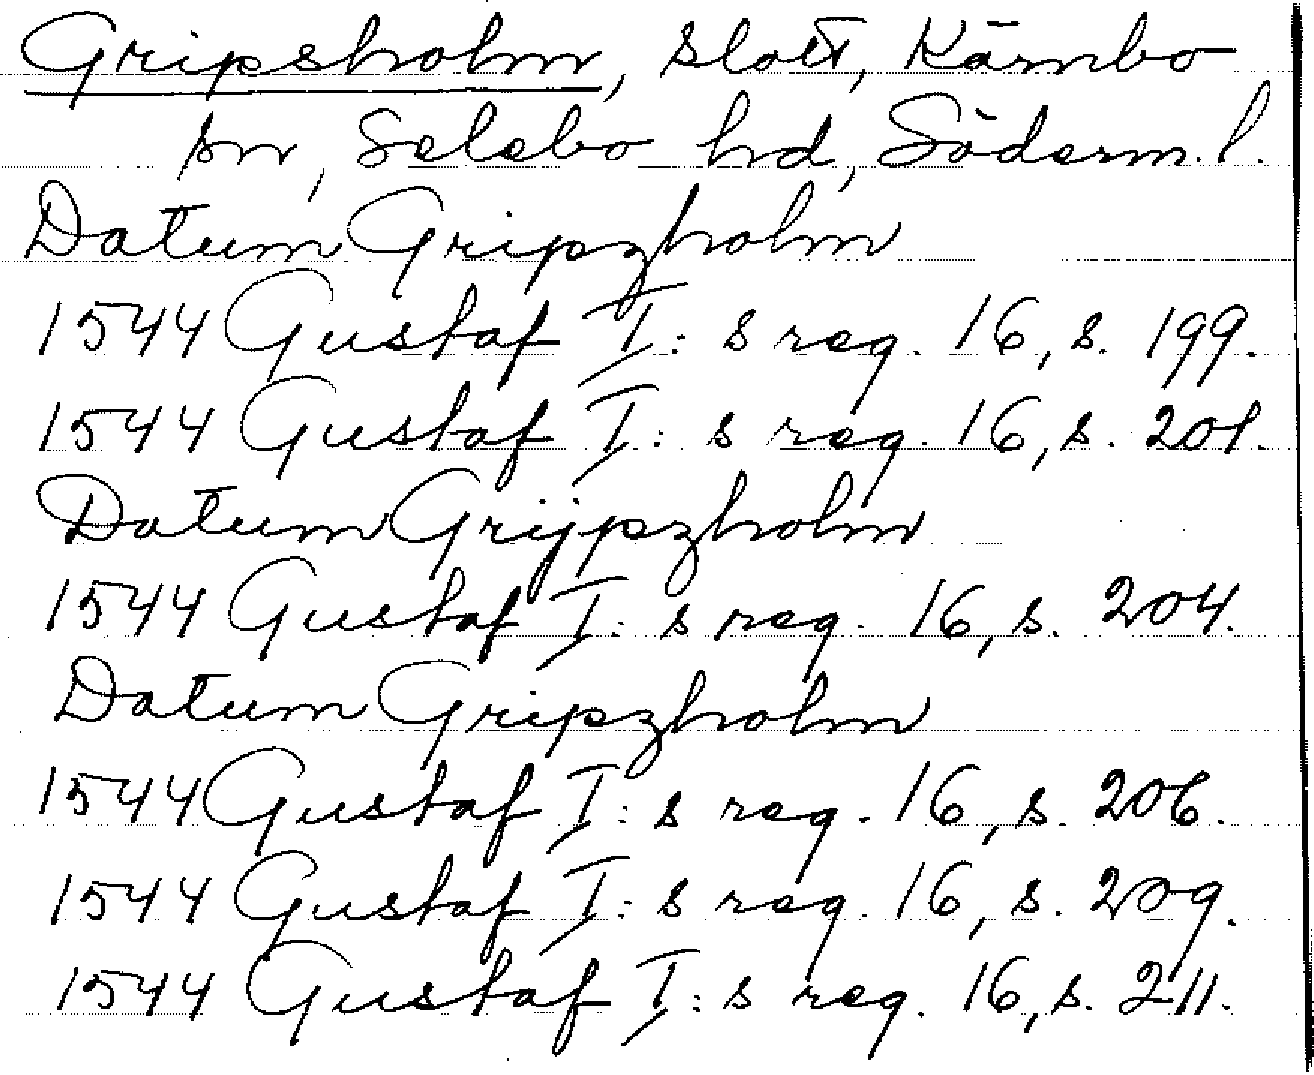 Gripsholm, slott, Kärnbo
sn, Selebo hd, Söderm. l.
Datum Gripzholm
1544 Gustaf I: s reg. 16, s. 199.
1544 Gustaf I: s reg. 16, s. 201.
Datum Grijpzholm
1544 Gustaf I: s reg. 16, s. 204.
Datum Gripzholm
1544 Gustaf I: s reg. 16, s. 206.
1544 Gustaf I: s reg. 16, s. 209.
1544 Gustaf I: s reg. 16, s. 211.